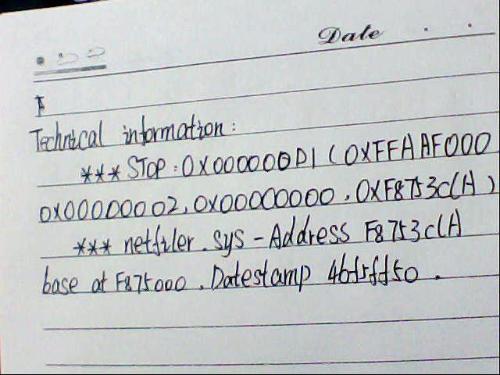 Date . .
Technical information:
*** STOP: 0X000000D1 (0XFFAAF000
0X00000002, 0X00000000, 0XF8753C(A)
*** netfiler.sys - Address F8753C(A
base at F875000. Datestamp 4bf5fd50.